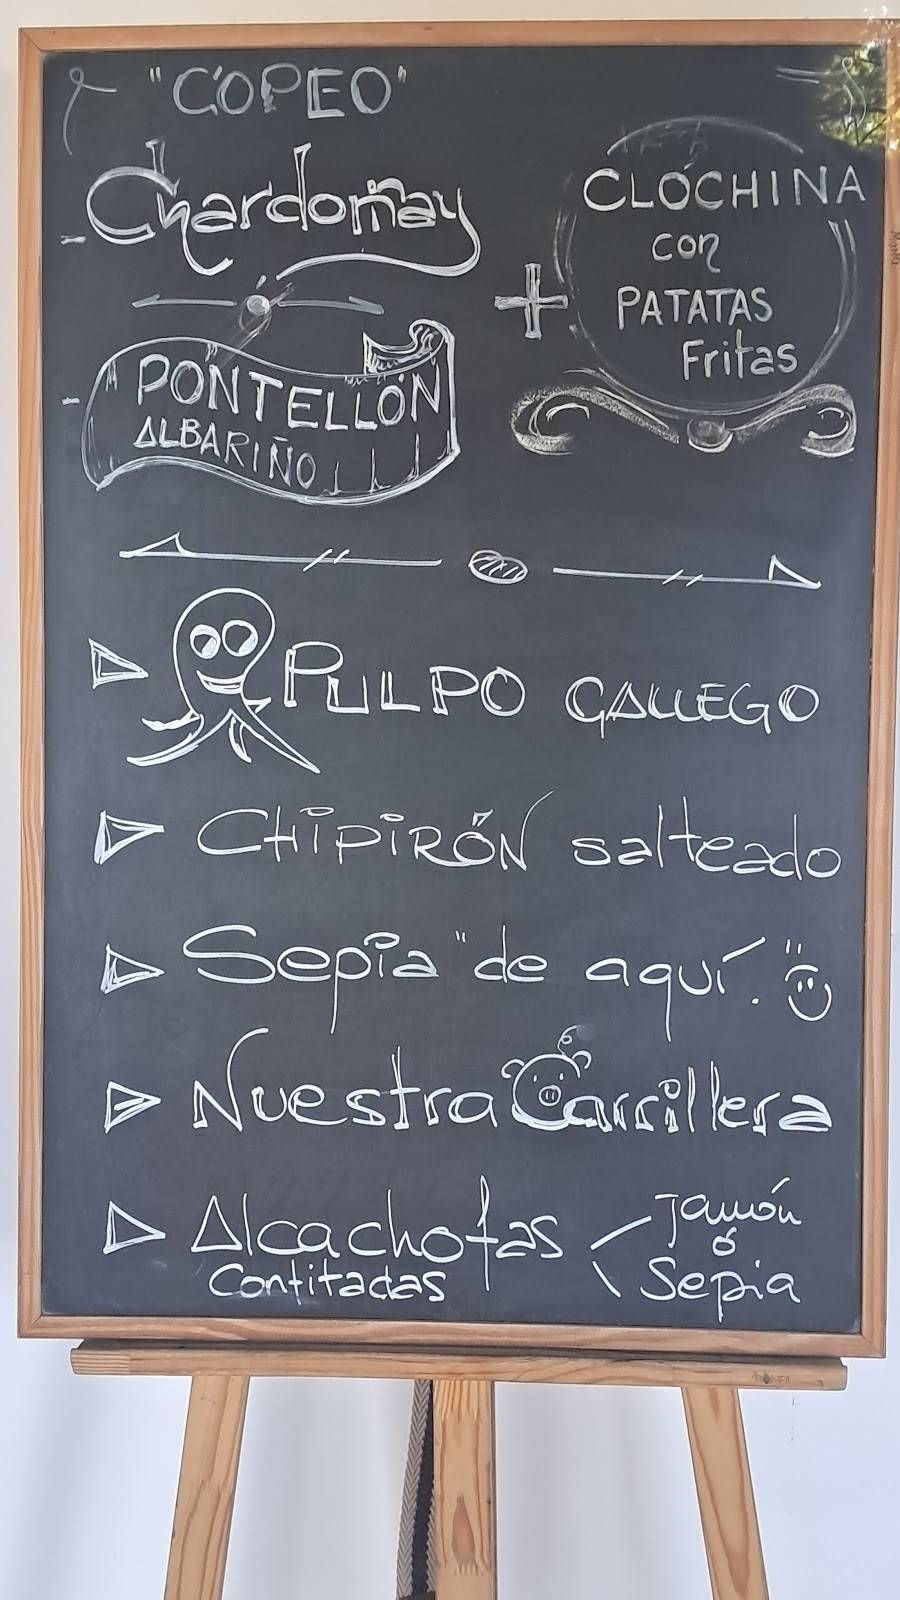 "COPEO"
- Chardonnay
- PONTELLÓN
ALBARIÑO
+
CLÓCHINA
con
PATATAS
Fritas
PULPO GALLEGO
CHIPIRÓN salteado
Sepia "de aquí."
Nuestra Carrillera
Alcachofas
Confitadas
Jamón
ó
Sepia